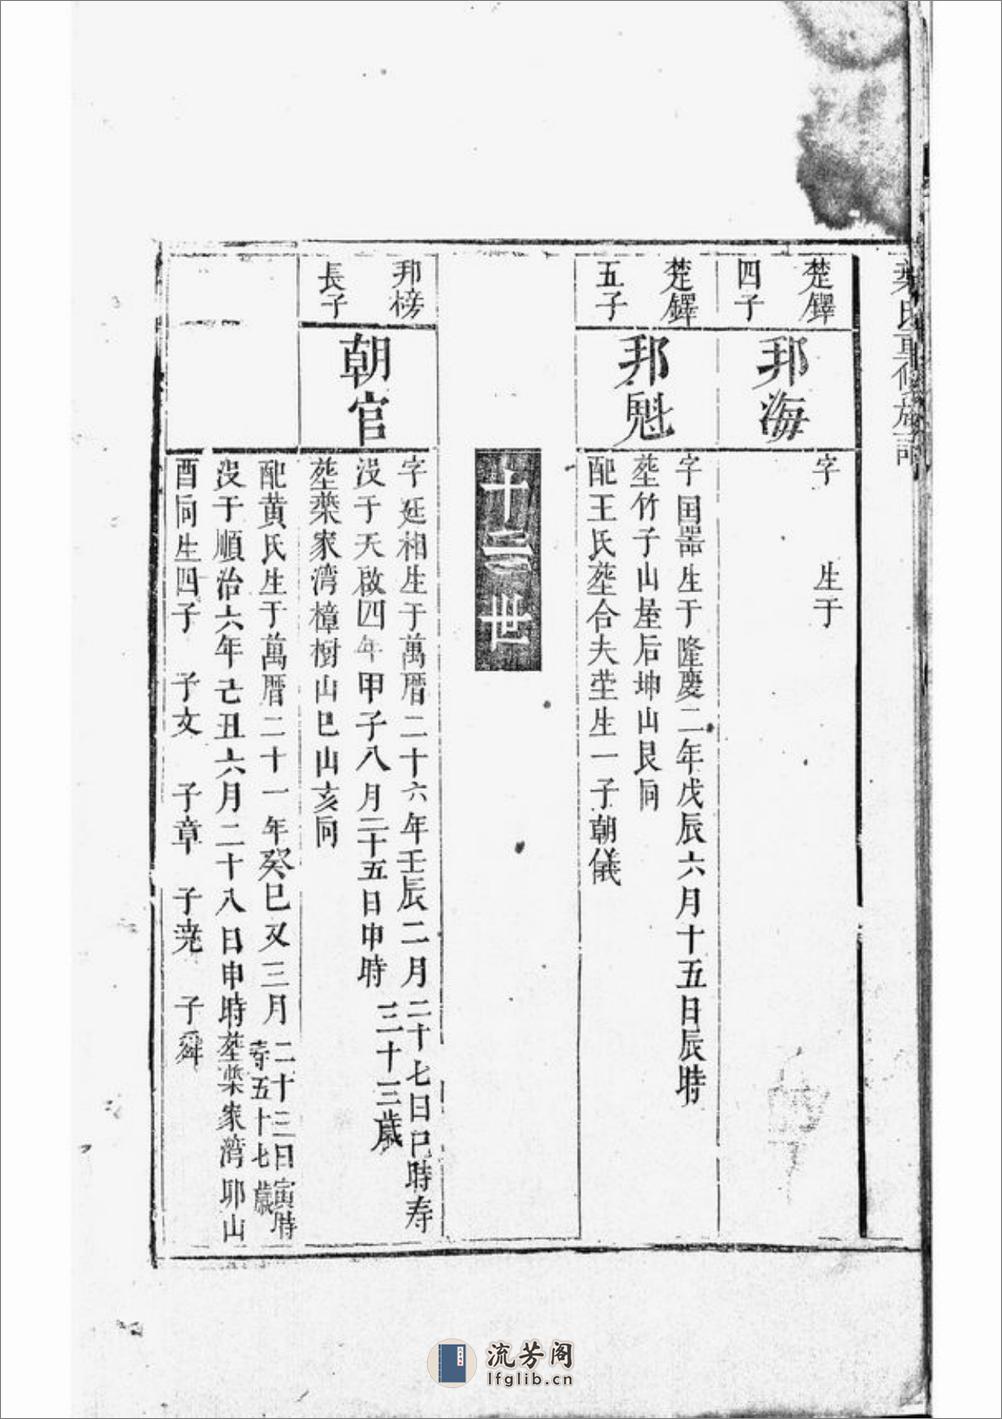 楚鐸
四子
邦海
字 生于
楚鐸
五子
邦魁
字国器生于隆慶二年戊辰六月十五日辰時
塟竹子山屋后坤山艮向
配王氏塟合夫茔生一子朝儀
十三世
邦榜
長子
朝官
字廷相生于萬曆二十六年壬辰二月二十七日巳時寿
三十三歲
没于天啟四年甲子八月二十五日申時
塟欒家湾樟樹山巳山亥向
配黄氏生于萬曆二十一年癸巳又三月二十三日寅時
寿五十七歲
没于順治六年己丑六月二十八日申時塟欒家湾夘山
酉向生四子 子文 子章 子尭 子舜
流芳阁
lfglib.cn